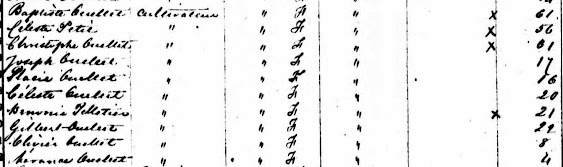 Baptiste Ouellet Cultivateur " F x 61
Céleste Petit " " F x 56
Christophe Ouellet " " F x 31
Joseph Ouellet " " F 17
Placis Ouellet " " F 16
Céleste Ouellet " " F 20
Pelletier " " F x 21
Gilbert Ouellet " " F 22
Olivier Ouellet " " F 8
Ouellet " " F 4